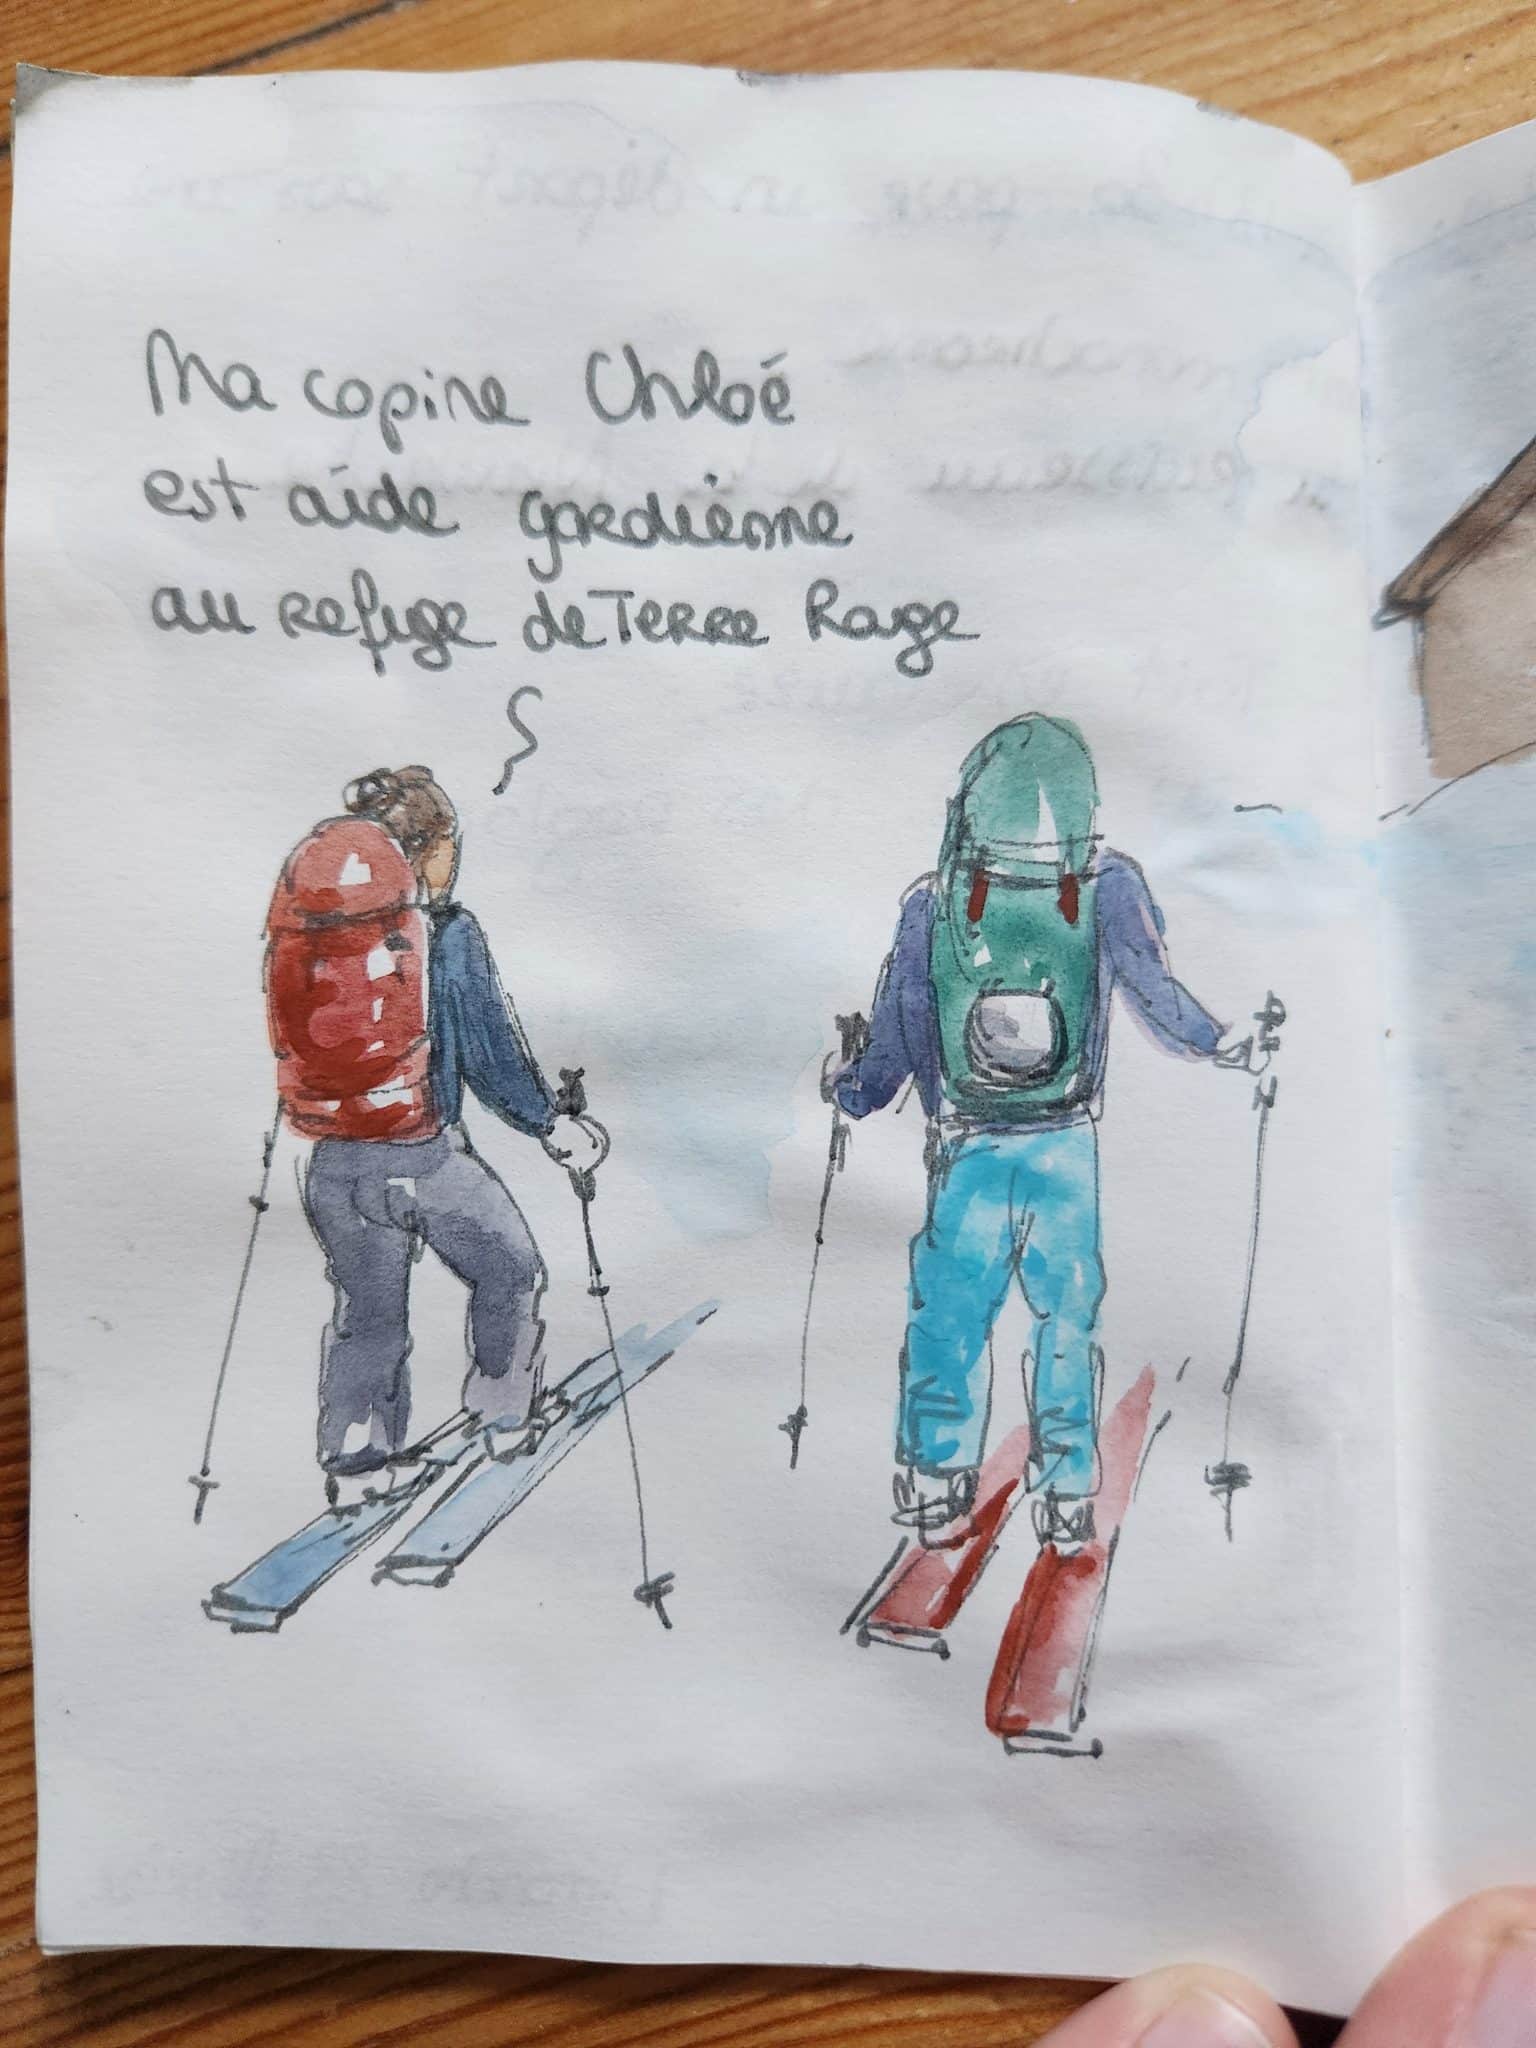 Ma copine Chloé
est aide gardienne
au refuge de Terre Rouge